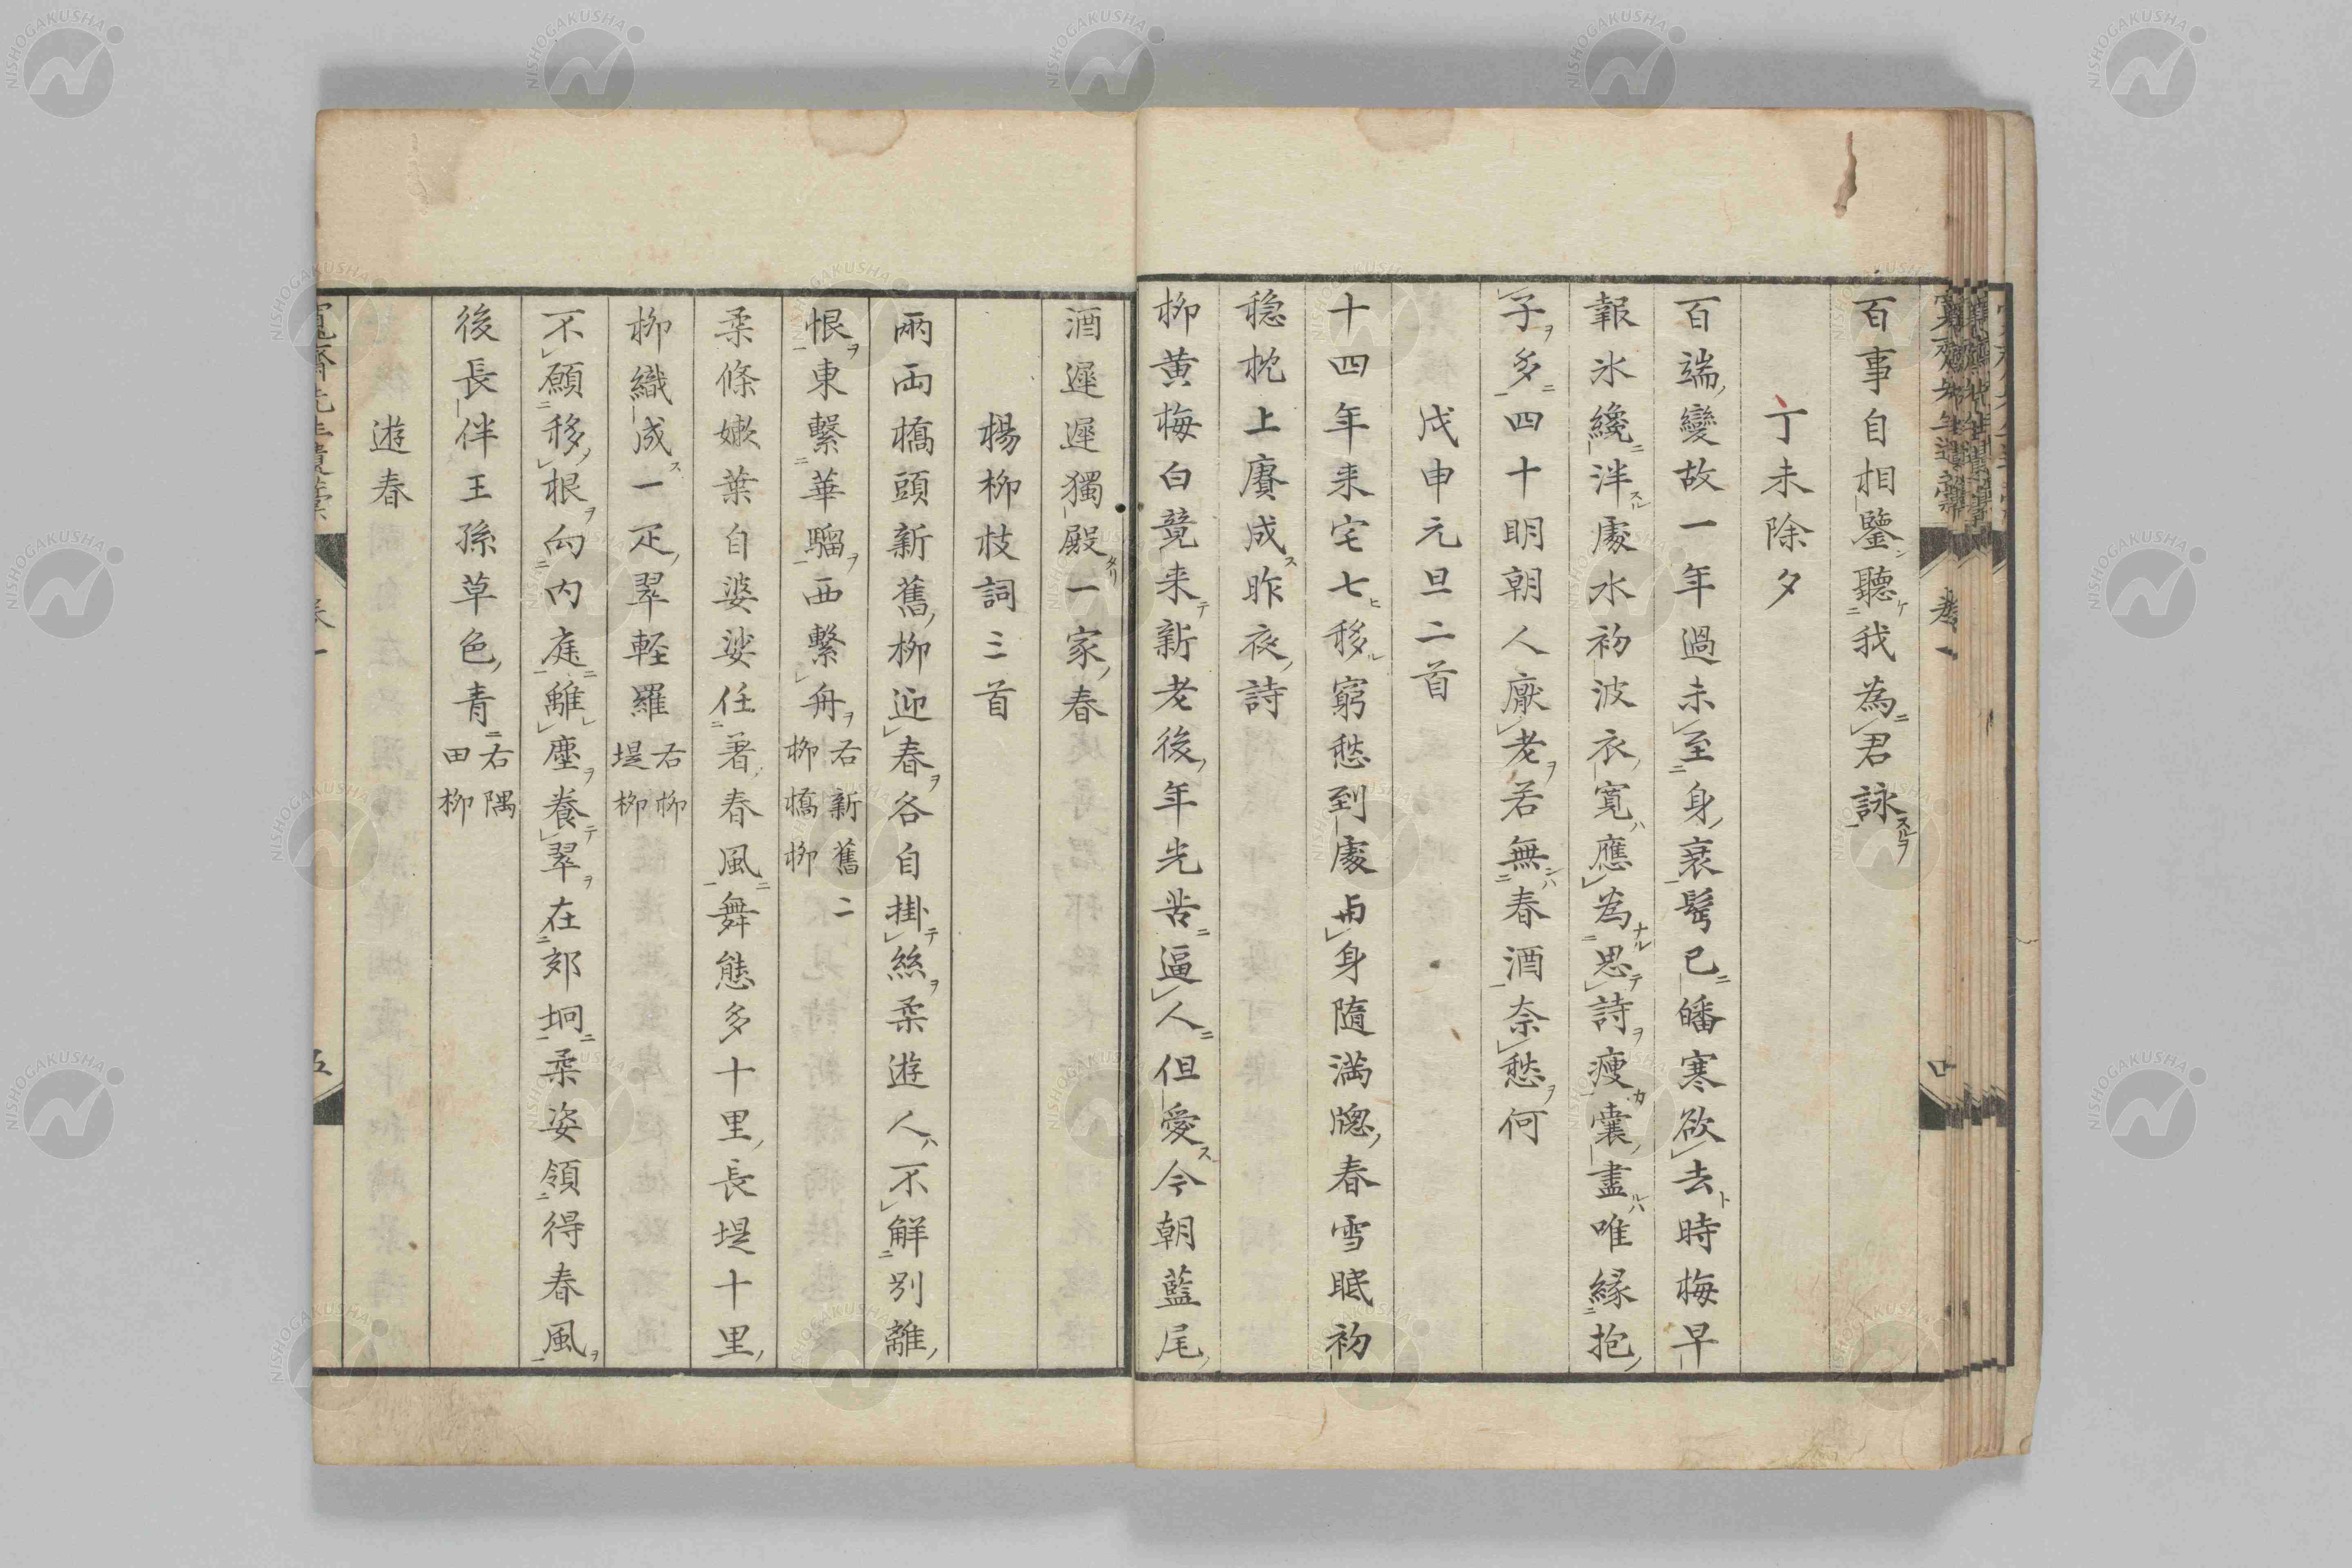 百事自相鑒聽我為君詠
丁未除夕
百端變故一年過未至身衰髩已皤寒欲去時梅早
報氷纔泮處水初波衣寬應為思詩瘦囊盡唯緣抱
子多四十明朝人厭老若無春酒奈愁何
戊申元旦二首
十四年来宅七移窮愁到處与身隨滿牎春雪眠初
穏枕上賡成昨夜詩
柳黄梅白競来新老後年光苦逼人但愛今朝藍尾
酒遲遲獨殿一家春
楊柳枝詞三首
兩両橋頭新舊柳迎春各自掛絲柔遊人不解別離
恨東繫華騮西繫舟 右新舊二柳橋柳
柔條嫩葉自婆娑任著春風舞態多十里長堤十里
柳織成一疋翠軽羅 右柳堤柳
不願移根向內庭離塵養翠在郊坰柔姿領得春風
後長伴王孫草色青 右隅田柳
遊春
卷一
四
五
NISHOGAKUSHA